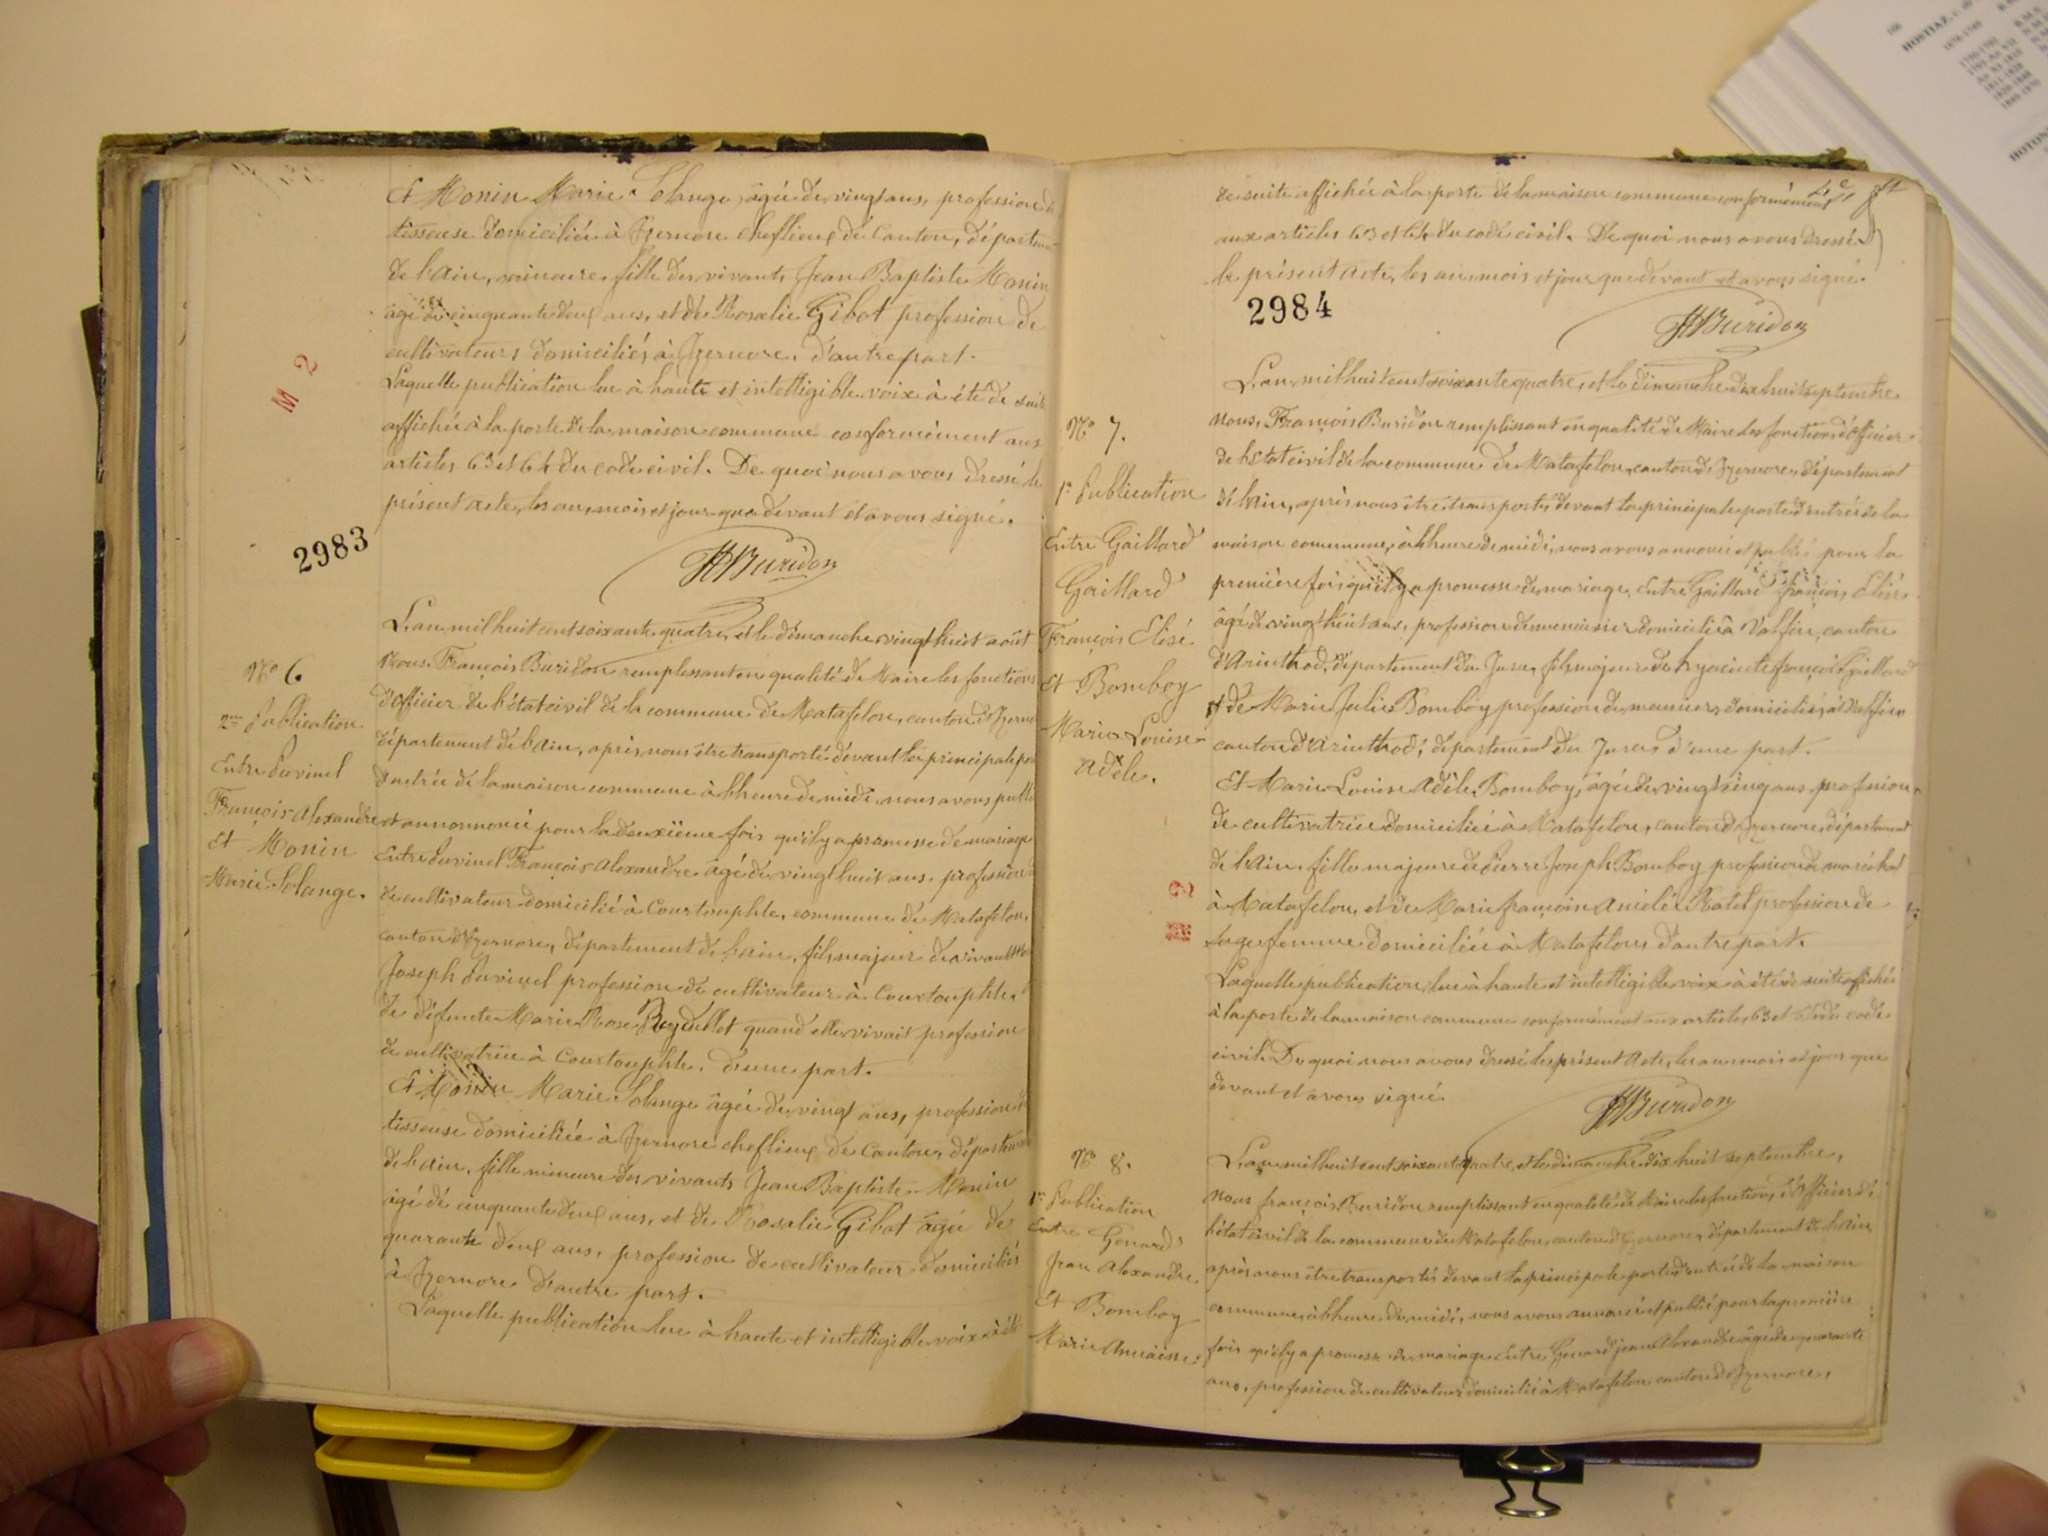 Et Monin Marie Solange, âgée de vingt ans, profession de
tisseuse domiciliée à Izernore cheflieu de Canton, départem
de l'Ain, mineure, fille des vivants Jean Baptiste Monin
âgé de cinquante deux ans, et de Rosalie Gibot profession de
cultivateurs domiciliés à Izernore, d'autre part.
Laquelle publication lue à haute et intelligible voix à été de suite
affichée à la porte de la maison commune conformément aux
articles 63 et 64 du code civil. De quoi nous avons dressé le
présent acte, les an, mois et jour que devant et avons signé.
M 2
2983
Buridon
No 6.
2me Publication
Entre Puvinel
François Alexandre
Et Monin
Marie Solange.
L'an mil huit cent soixante quatre, et le dimanche vingt huit août
Nous François Buridon remplissant en qualité de Maire les fonctions
d'officier de l'état civil de la commune de Matafelon, canton d'Izernore
département de l'Ain, après nous être transporté devant la principale porte
d'entrée de la maison commune à l'heure de midi, nous avons publié
et annonné pour la deuxième fois qu'il y a promesse de mariage
Entre Puvinel François Alexandre âgé de vingt huit ans, profession
de cultivateur domicilié à Courtouphle, commune de Matafelon,
canton d'Izernore, département de l'ain, fils majeur de vivant
Joseph Puvinel profession de cultivateur à Courtouphle,
de défuncte Marie Rose Reydellet quand elle vivait profession
de cultivatrice à Courtouphle, d'une part.
Et Monin Marie Solange âgée de vingt ans, profession de
tisseuse domiciliée à Izernore cheflieu de Canton, départem
de l'Ain, fille mineure des vivants Jean Baptiste Monin
âgé de cinquante deux ans, et de Rosalie Gibot âgée de
quarante deux ans, profession de cultivateur domiciliés
à Izernore d'autre part.
Laquelle publication lue à haute et intelligible voix à été
de suite affichée à la porte de la maison commune conformément
aux articles 63 et 64 du code civil. De quoi nous avons dressé
le présent acte, les an, mois et jour que devant et avons signé.
2984
Buridon
No 7.
1re Publication
Entre Gaillard
Gaillard
François Elisé
Et Bomboy
Marie Louise
Adèle.
L'an mil huit cent soixante quatre, et le dimanche dix huit septembre
nous, François Buridon remplissant en qualité de Maire les fonctions d'officier
de l'état civil de la commune de Matafelon, canton d'Izernore, département
de l'Ain, après nous être transporté devant la principale porte d'entrée de la
maison commune, à l'heure de midi, nous avons annoncé et publié pour la
première fois qu'il y a promesse de mariage, Entre Gaillard François Elisé
âgé de vingt huit ans, profession de menuisier domicilié à Valfin, canton
d'Arinthod, département du Jura, fils majeur de hyacinte françois Gaillard
et de Marie Julie Bomboy profession de meuniers domiciliés à Valfin
canton d'Arinthod, département du Jura, d'une part.
Et Marie Louise Adèle Bomboy, âgée de vingt cinq ans profession
de cultivatrice domiciliée à Matafelon, canton d'Izernore, département
de l'Ain, fille majeure de Pierre Joseph Bomboy profession de maréchal
à Matafelon, et de Marie françoise Ratel profession de
sage femme domiciliée à Matafelon d'autre part.
Laquelle publication, lue à haute et intelligible voix à été de suite affichée
à la porte de la maison commune conformément aux articles 63 et 64 du code
civil. De quoi nous avons dressé le présent Acte, les an mois et jour que
devant et avons signé.
Buridon
No 8.
1re Publication
Entre Genard
Jean Alexandre
Et Bomboy
Marie
L'an mil huit cent soixante quatre, et le dimanche dix huit septembre,
Nous françois Buridon remplissant en qualité de Maire les fonctions d'Officier de
l'état civil de la commune de Matafelon, canton d'Izernore, département de l'Ain
après nous être transportés devant la principale porte d'entrée de la maison
commune, à l'heure de midi, nous avons annoncé et publié pour la première
fois qu'il y a promesse de mariage Entre Genard jean Alexandre âgé de quarante
ans, profession de cultivateur domicilié à Matafelon canton d'Izernore,